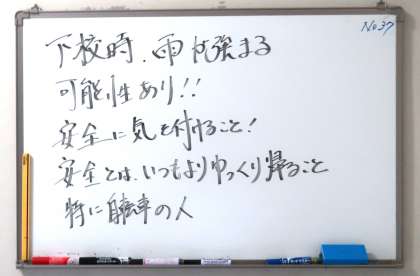 No37
下校時、雨が強まる
可能性あり!!
安全に気を付けること!
安全とは、いつもよりゆっくり帰ること
特に自転車の人